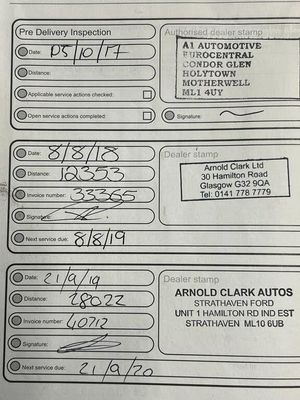 Pre Delivery Inspection
Authorised dealer stamp
Date: 05/10/17
Distance:
Applicable service actions checked:
Open service actions completed:
A1 AUTOMOTIVE
EUROCENTRAL
CONDOR GLEN
HOLYTOWN
MOTHERWELL
ML1 4UY
Signature:
Date: 8/8/18
Distance: 12353
Invoice number: 33365
Signature:
Next service due: 8/8/19
Dealer stamp
Arnold Clark Ltd
30 Hamilton Road
Glasgow G32 9QA
Tel: 0141 778 7779
Date: 21/9/19
Distance: 28022
Invoice number: 40712
Signature:
Next service due: 21/9/20
Dealer stamp
ARNOLD CLARK AUTOS
STRATHAVEN FORD
UNIT 1 HAMILTON RD IND EST
STRATHAVEN ML10 6UB